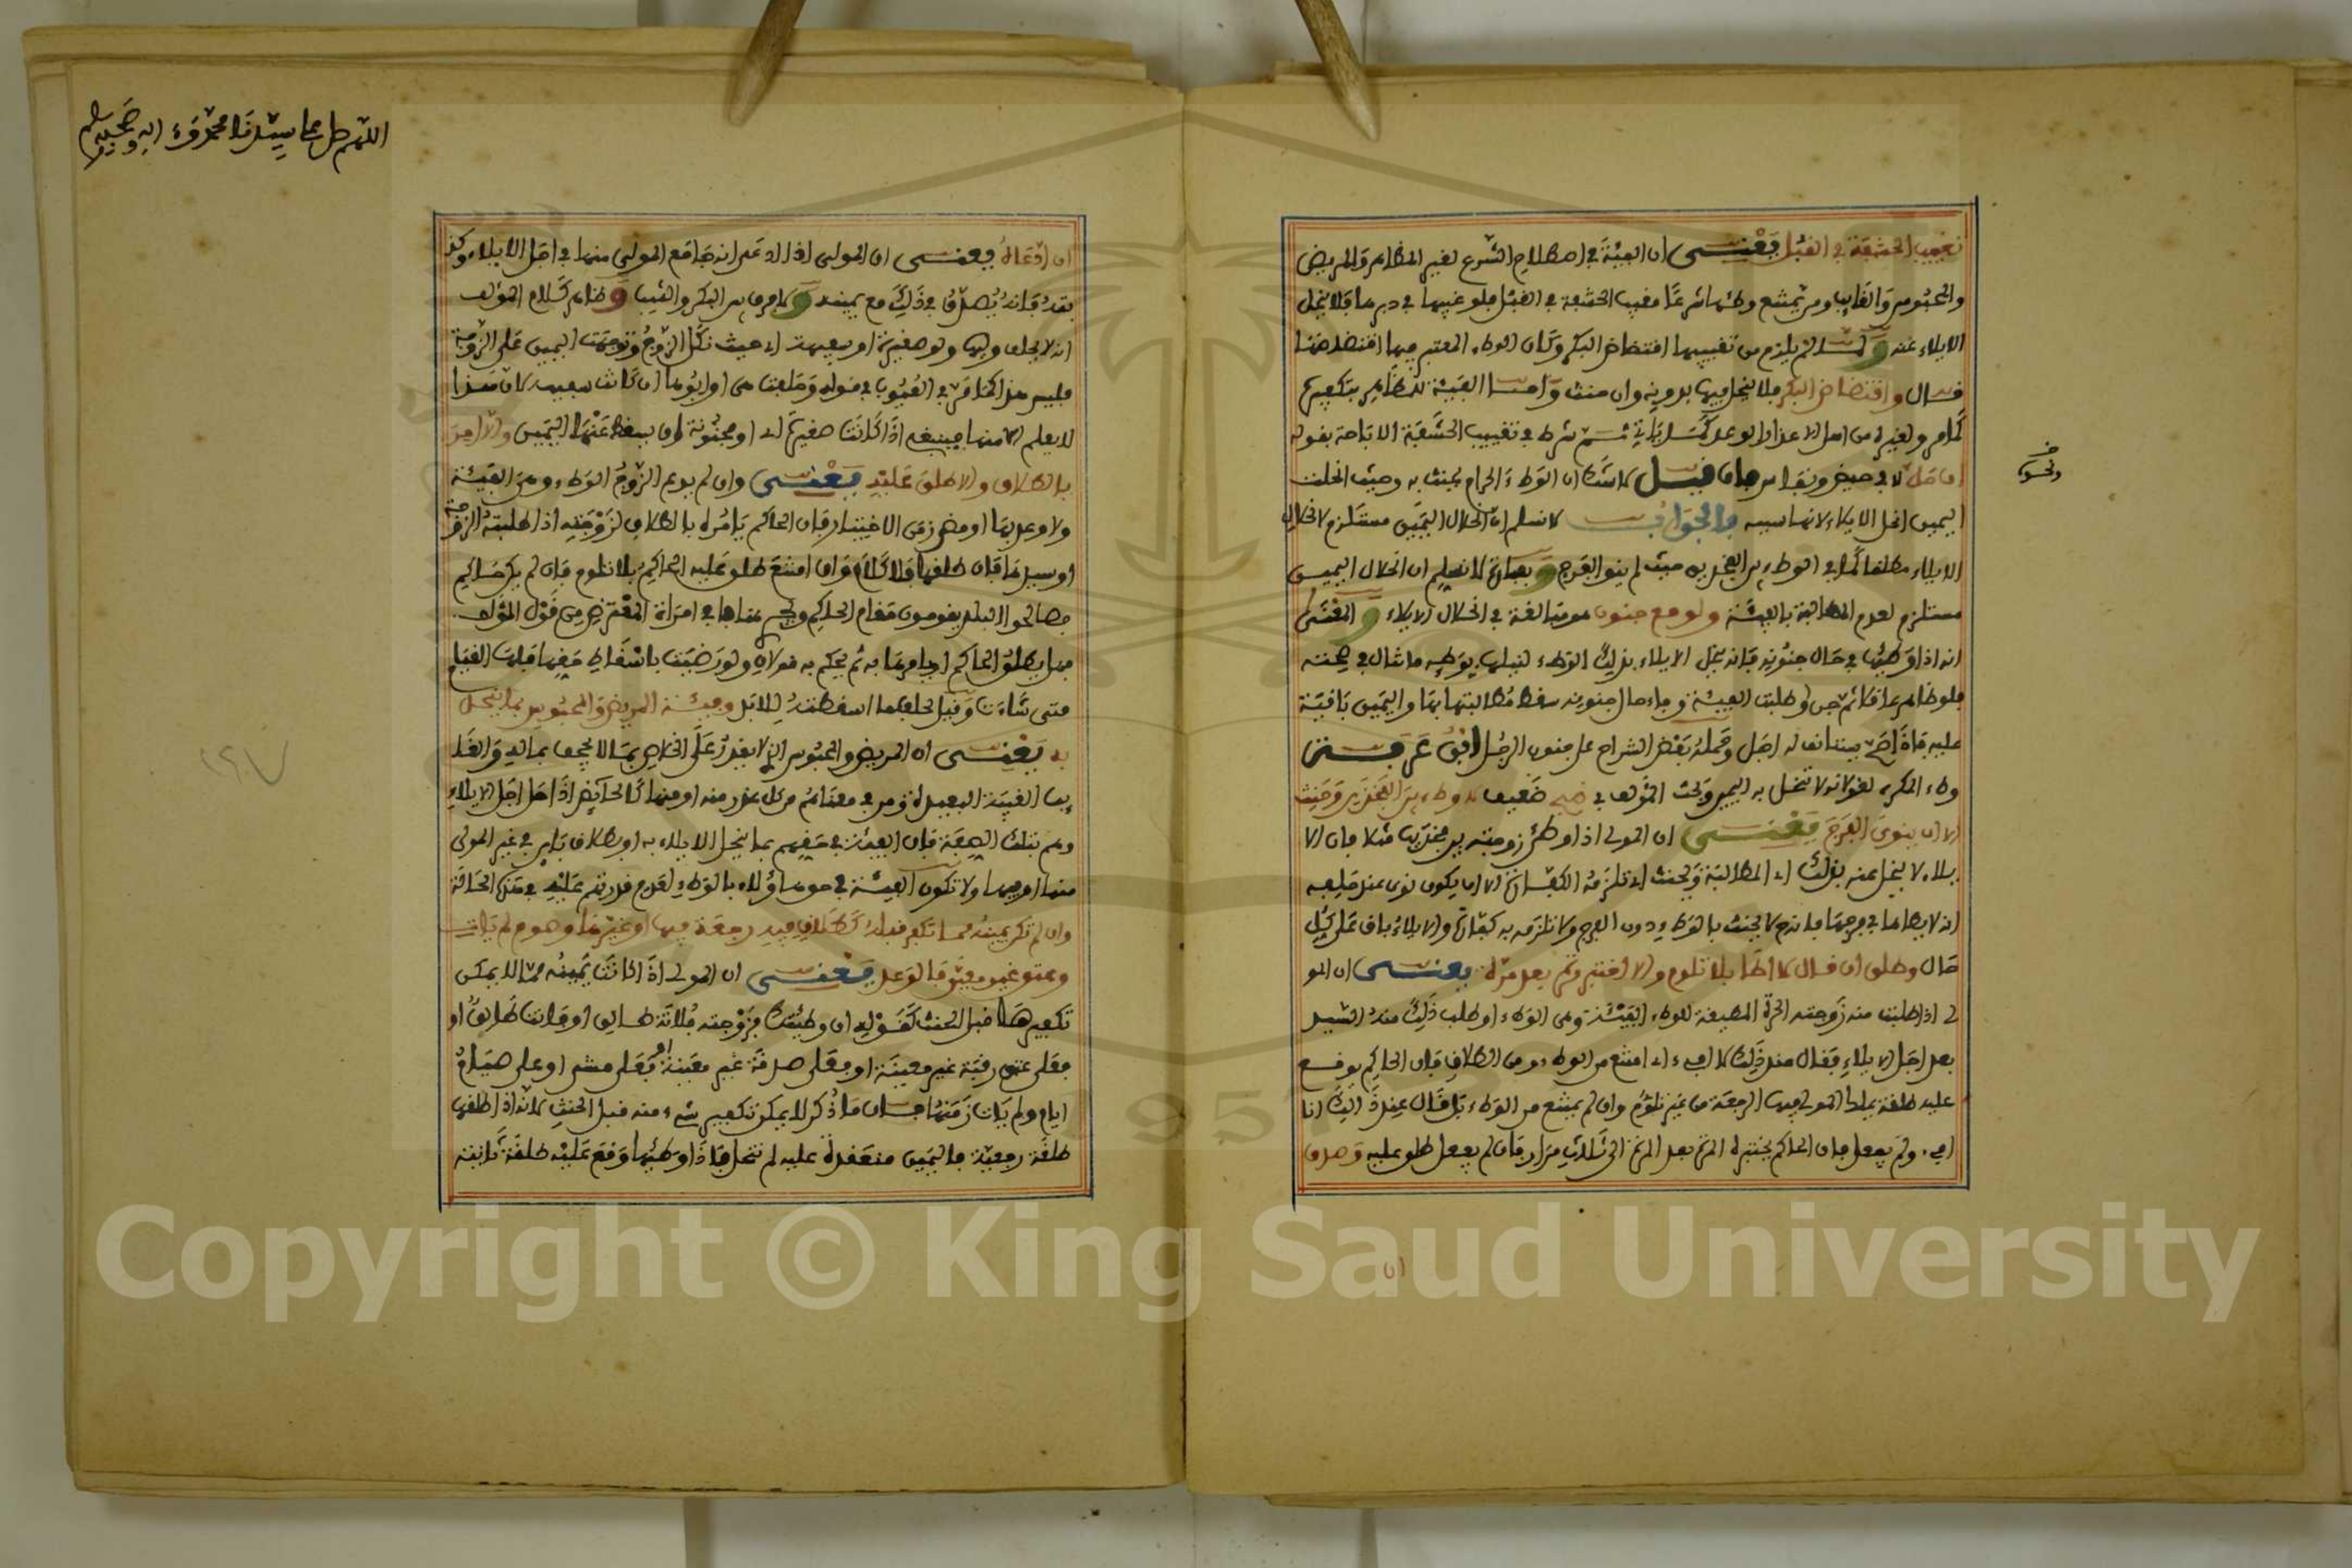 تغييب الحشفة في القبل يعني ان الفيئة في اصطلاح الشرع لغير المظاهر والمريض
والمحبوس والغايب ومن يمتنع وطئها شرعا مغيب الحشفة في القبل فلو غيبها في دبرها فلا ينحل
الايلاء عنه ولما لم يلزم من تغييبها افتضاض البكر وكان الوطء المعتبر فيها افتضاضها
قال وافتضاض البكر فلا ينحل فيها بدونه وان حنث واما الفيئة للمظاهر بتكفيره
كما مر ولغيره من اهل الاعذار الوعد كما ياتي ثم شرط في تغييب الحشفة الاباحة بقوله
ان حل لا في حيض ونفاس فان قيل لا شك ان الوطء الحرام يحنث به وحيث انحلت
ونحوه
اليمين انحل الايلاء لانها سببه فالجواب لا نسلم ان انحلال اليمين مستلزم لانحلال
الايلاء مطلقا كما في الوطء بين الفخذين حيث لم ينو الفرج وبعبارة لا نسلم ان انحلال اليمين
مستلزم لعدم المطالبة بالفيئة ولو مع جنون هو مبالغة في انحلال الايلاء والمعنى
انه اذا وطئها في حال جنونه فانه ينحل الايلاء بذلك الوطء لنيلها بوطيه ما تنال في صحته
فلو ظاهر عاقلا ثم جن وطلبت الفيئة وفاء حال جنونه سقط مطالبتها بها واليمين باقية
عليه فاذا صح يستانف له اجل وحمله بعض الشراح على جنون الرجل
وطء المكره لغو لانه لا تنحل به اليمين وبحث المؤلف في ضعيف لا وطء بين الفخذين وحنث
الا ان ينوي الفرج يعني ان المولي اذا وطئ زوجته بين فخذيها مثلا فان الا
يلاء لا ينحل عنه بذلك اي المطالبة ويحنث اي تلزمه الكفارة الا ان يكون نوى عند حلفه
انه لا يطاها في فرجها فانه لا يحنث بالوطء دون الفرج ولا تلزمه به كفارة والايلاء باق على كل
حال وطلق ان قال لا اطا بلا تلوم والا اختبر مرة بعد مرة يعني ان المو
لي اذا طلبت منه زوجته الحرة المطيقة للوطء الفيئة وهي الوطء او طلب ذلك منه السيد
بعد اجل الايلاء فقال عند ذلك لا افيء اي امتنع من الوطء ومن الطلاق فان الحاكم يوقع
عليه طلقة يملك المولي فيها الرجعة من غير تلوم وان لم يمتنع من الوطء بل قال عند ذلك انا
افيء ولم يفعل فان الحاكم يختبره المرة بعد المرة الى ثلاث مرار فان لم يفعل طلق عليه وصدق
ان
اللهم صل على سيدنا محمد وءاله وصحبه وسلم
ان ادعاه يعني ان المولي اذا ادعى انه جامع المولي منها في اجل الايلاء وكذ
بعده فانه يصدق في ذلك مع يمينه ولا فرق بين البكر والثيب وظاهر كلام المؤلف
انه لا يحلف وليها ولو صغيرة او سفيهة اي حيث نكل الزوج وتوجهت اليمين على الزوجة
فليس هذا كما مر في العيوب في قوله وحلفت هي او ابوها ان كانت سفيهة لان هذا
لا يعلم الا منها فينبغي اذا كانت صغيرة اي او مجنونة ان يسقط عنها اليمين والا امر
بالطلاق والا طلق عليه يعني وان لم يدع الزوج الوطء وهو الفيئة
ولا وعد بها او مضى زمن الاختبار فان الحاكم يامره بالطلاق لزوجته اذا طلبته الزوجة
او سيدها فان طلقها فلا كلام وان امتنع طلق عليه الحاكم بلا تلوم فان لم يكن حاكم
فصالحو البلد يقومون مقام الحاكم ويجري هنا ما في امراة المعترض من قول المؤلف
فهل يطلق الحاكم او يامرها به ثم يحكم به قولان ولو رضيت باسقاط حقها فلها القيام
متى شاءت وقيل تحلف ما اسقطته للابد وفيئة المريض والمحبوس بما ينحل
به يعني ان المريض والمحبوس الذي لا يقدر على الخلاص بما لا يجحف بماله والغا
يب الغيبة البعيدة ومن في معناهم من كل عذر منه او منها كالحائض اذا حل اجل الايلاء
وهم بتلك الصفة فان الفيئة في حقهم بما ينحل الايلاء به او بطلاق باين في غير المولي
منها او فيها ولا تكون الفيئة في هؤلاء بالوطء لعدم قدرتهم عليه في هذه الحالة
وان لم تكن يمينه مما تكفر قبله كطلاق فيه رجعة فيها او غيرها وصوم لم يات
وعتق غير معين فالوعد يعني ان المولي اذا كانت يمينه مما لا يمكن
تكفيرها قبل الحنث كقوله ان وطئتك فزوجته فلانة طالق او فانت طالق او
فعلي عتق رقبة غير معينة او فعلي صدقة غير معينة او فعلي مشي او علي صيام
ايام ولم يات زمنها فان ما ذكر لا يمكن تكفير شيء منه قبل الحنث لانه اذا طلقها
طلقة رجعية فاليمين منعقدة عليه لم تنحل فاذا وطئها وقع عليه طلقة ثانية
Copyright © King Saud University